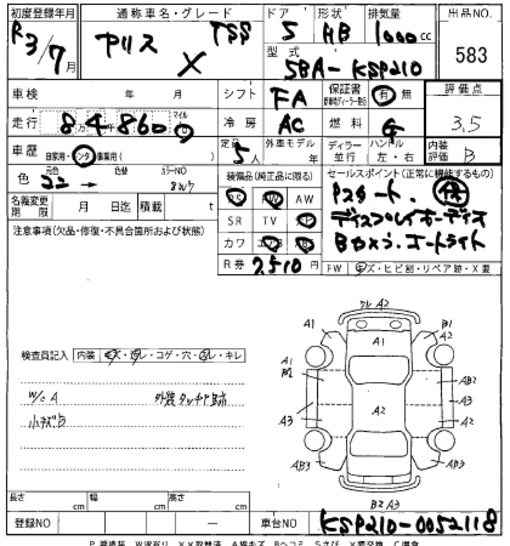 初度登録年月 通称車名・グレード ドア 形状 排気量 出品NO.
R3/7月 ヤリス X TSS 5 HB 1000cc 583
型式 5BA-KSP210
車検 年 月 シフト FA 保証書 有 無 評価点
走行 84860 マイル 冷房 AC 燃料 G 3.5
車歴 自家用・レンタ・事業用( ) 定員 5人 外車モデル 年 ディーラー 並行 ハンドル 左・右 内装評価 B
色 元色 色替 カラーNO 装備品(純正品に限る) セールスポイント(正常に機能するもの)
PS PW AW Pスタート.
名義変更期限 月 日迄 積載 t SR TV ナビ ディスプレイオーディオ
注意事項(欠品・修復・不具合箇所および状態) カワ エアB Bカメラ.オートライト
R券 7,510円 FW キズ・ヒビ割・リペア跡・X要
検査員記入 内装 キズ・汚レ・コゲ・穴・スレ・キレ
W/c A 外装タッチア跡
小キズB
フレ A2
A1 A1 B1
A1
B1 AB2
A2 A3
A3 A2
AB3 AB3
B2 A3
長さ cm 幅 cm 高さ cm
登録NO 車台NO KSP210-0052118